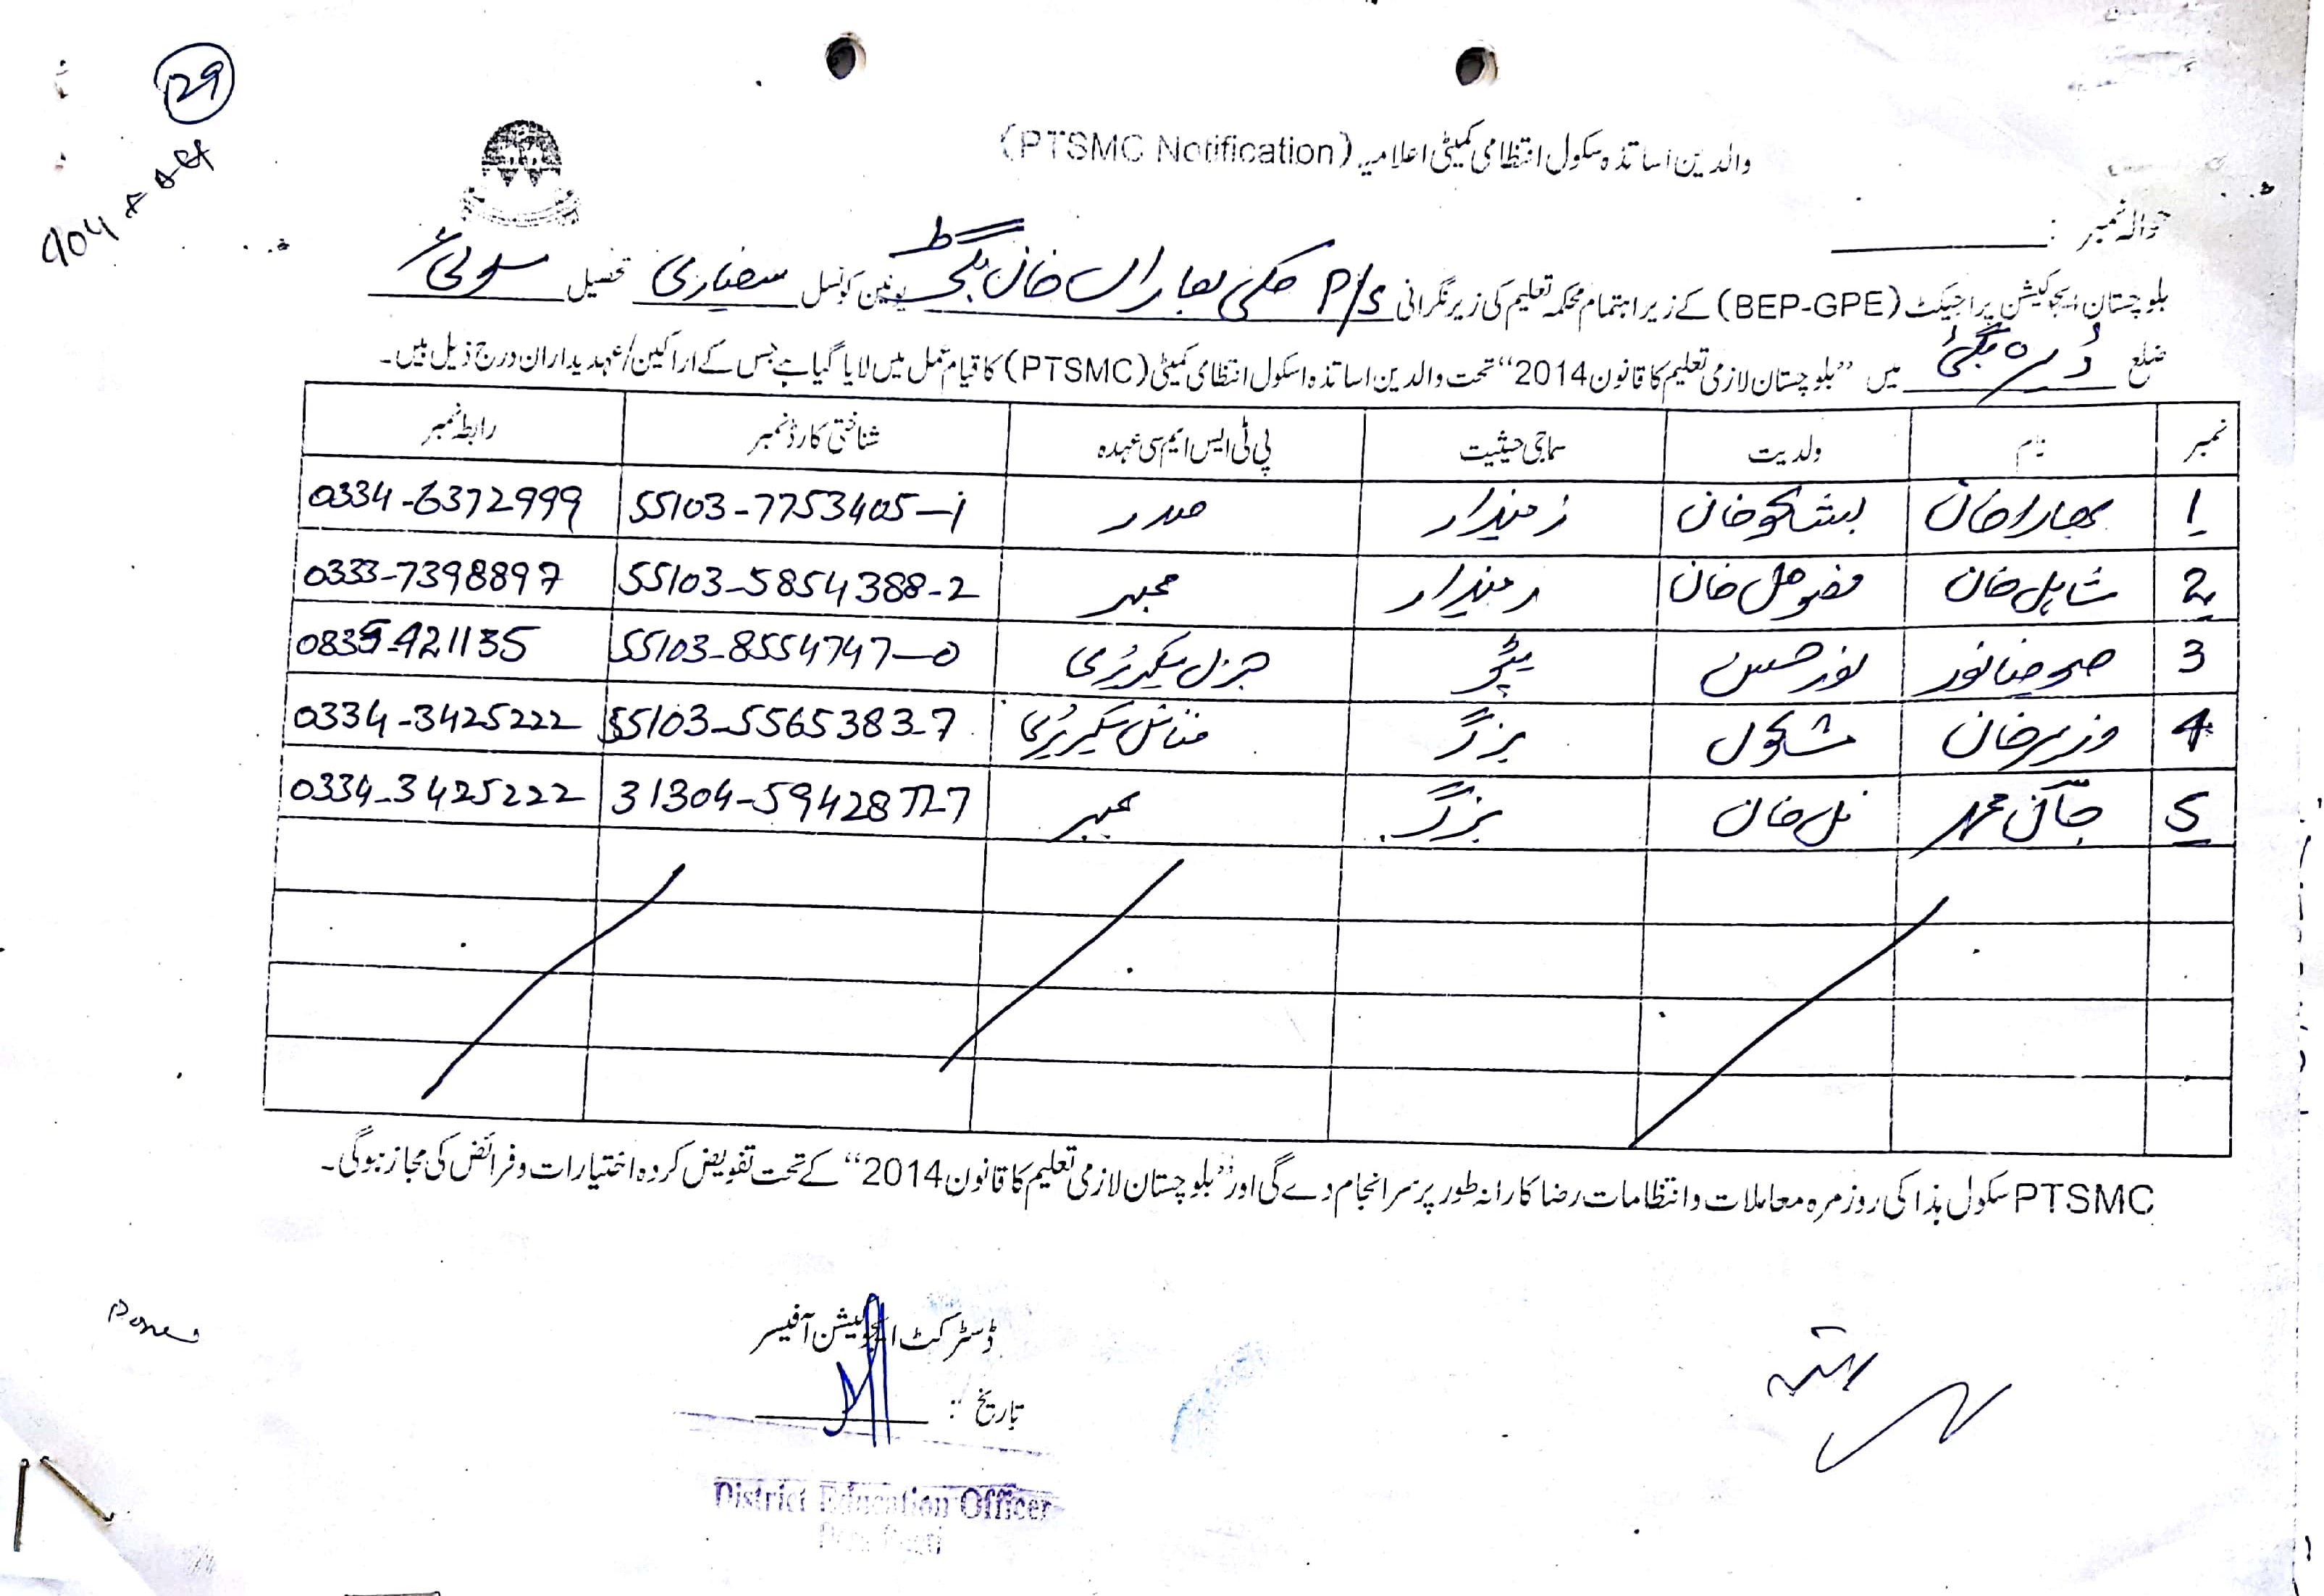 29
والدین اساتذہ سکول انتظامی کمیٹی اعلامیہ (PTSMC Notification)
حوالہ نمبر :
بلوچستان ایجوکیشن پراجیکٹ (BEP-GPE) کے زیر اہتمام محکمہ تعلیم کی زیر نگرانی P/S خان بگٹی یونین کونسل تحصیل سوئی
ضلع ڈیرہ بگٹی میں "بلوچستان لازمی تعلیم کا قانون 2014" تحت والدین اساتذہ اسکول انتظامی کمیٹی (PTSMC) کا قیام عمل میں لایا گیا ہے جس کے اراکین/عہدیداران درج ذیل ہیں۔
نمبر نام ولدیت سماجی حیثیت پی ٹی ایس ایم سی عہدہ شناختی کارڈ نمبر رابطہ نمبر
1 بھارا خان خان زمیندار صدر 55103-7753405-1 0334-6372999
2 خان خان زمیندار ممبر 55103-5854388-2 0333-7398897
3 نور حسن ٹیچر جنرل سیکریٹری 55103-8554747-0 0835-421135
4 وزیر خان بزگر فنانس سیکریٹری 55103-5565383-7 0334-3425222
5 محمد خان بزگر ممبر 31304-5942877-7 0334-3425222
PTSMC سکول ہذا کی روزمرہ معاملات و انتظامات رضا کارانہ طور پر سرانجام دے گی اور "بلوچستان لازمی تعلیم کا قانون 2014" کے تحت تفویض کردہ اختیارات و فرائض کی مجاز ہوگی۔
ڈسٹرکٹ ایجوکیشن آفیسر
تاریخ :
District Education Officer
Dera Bugti